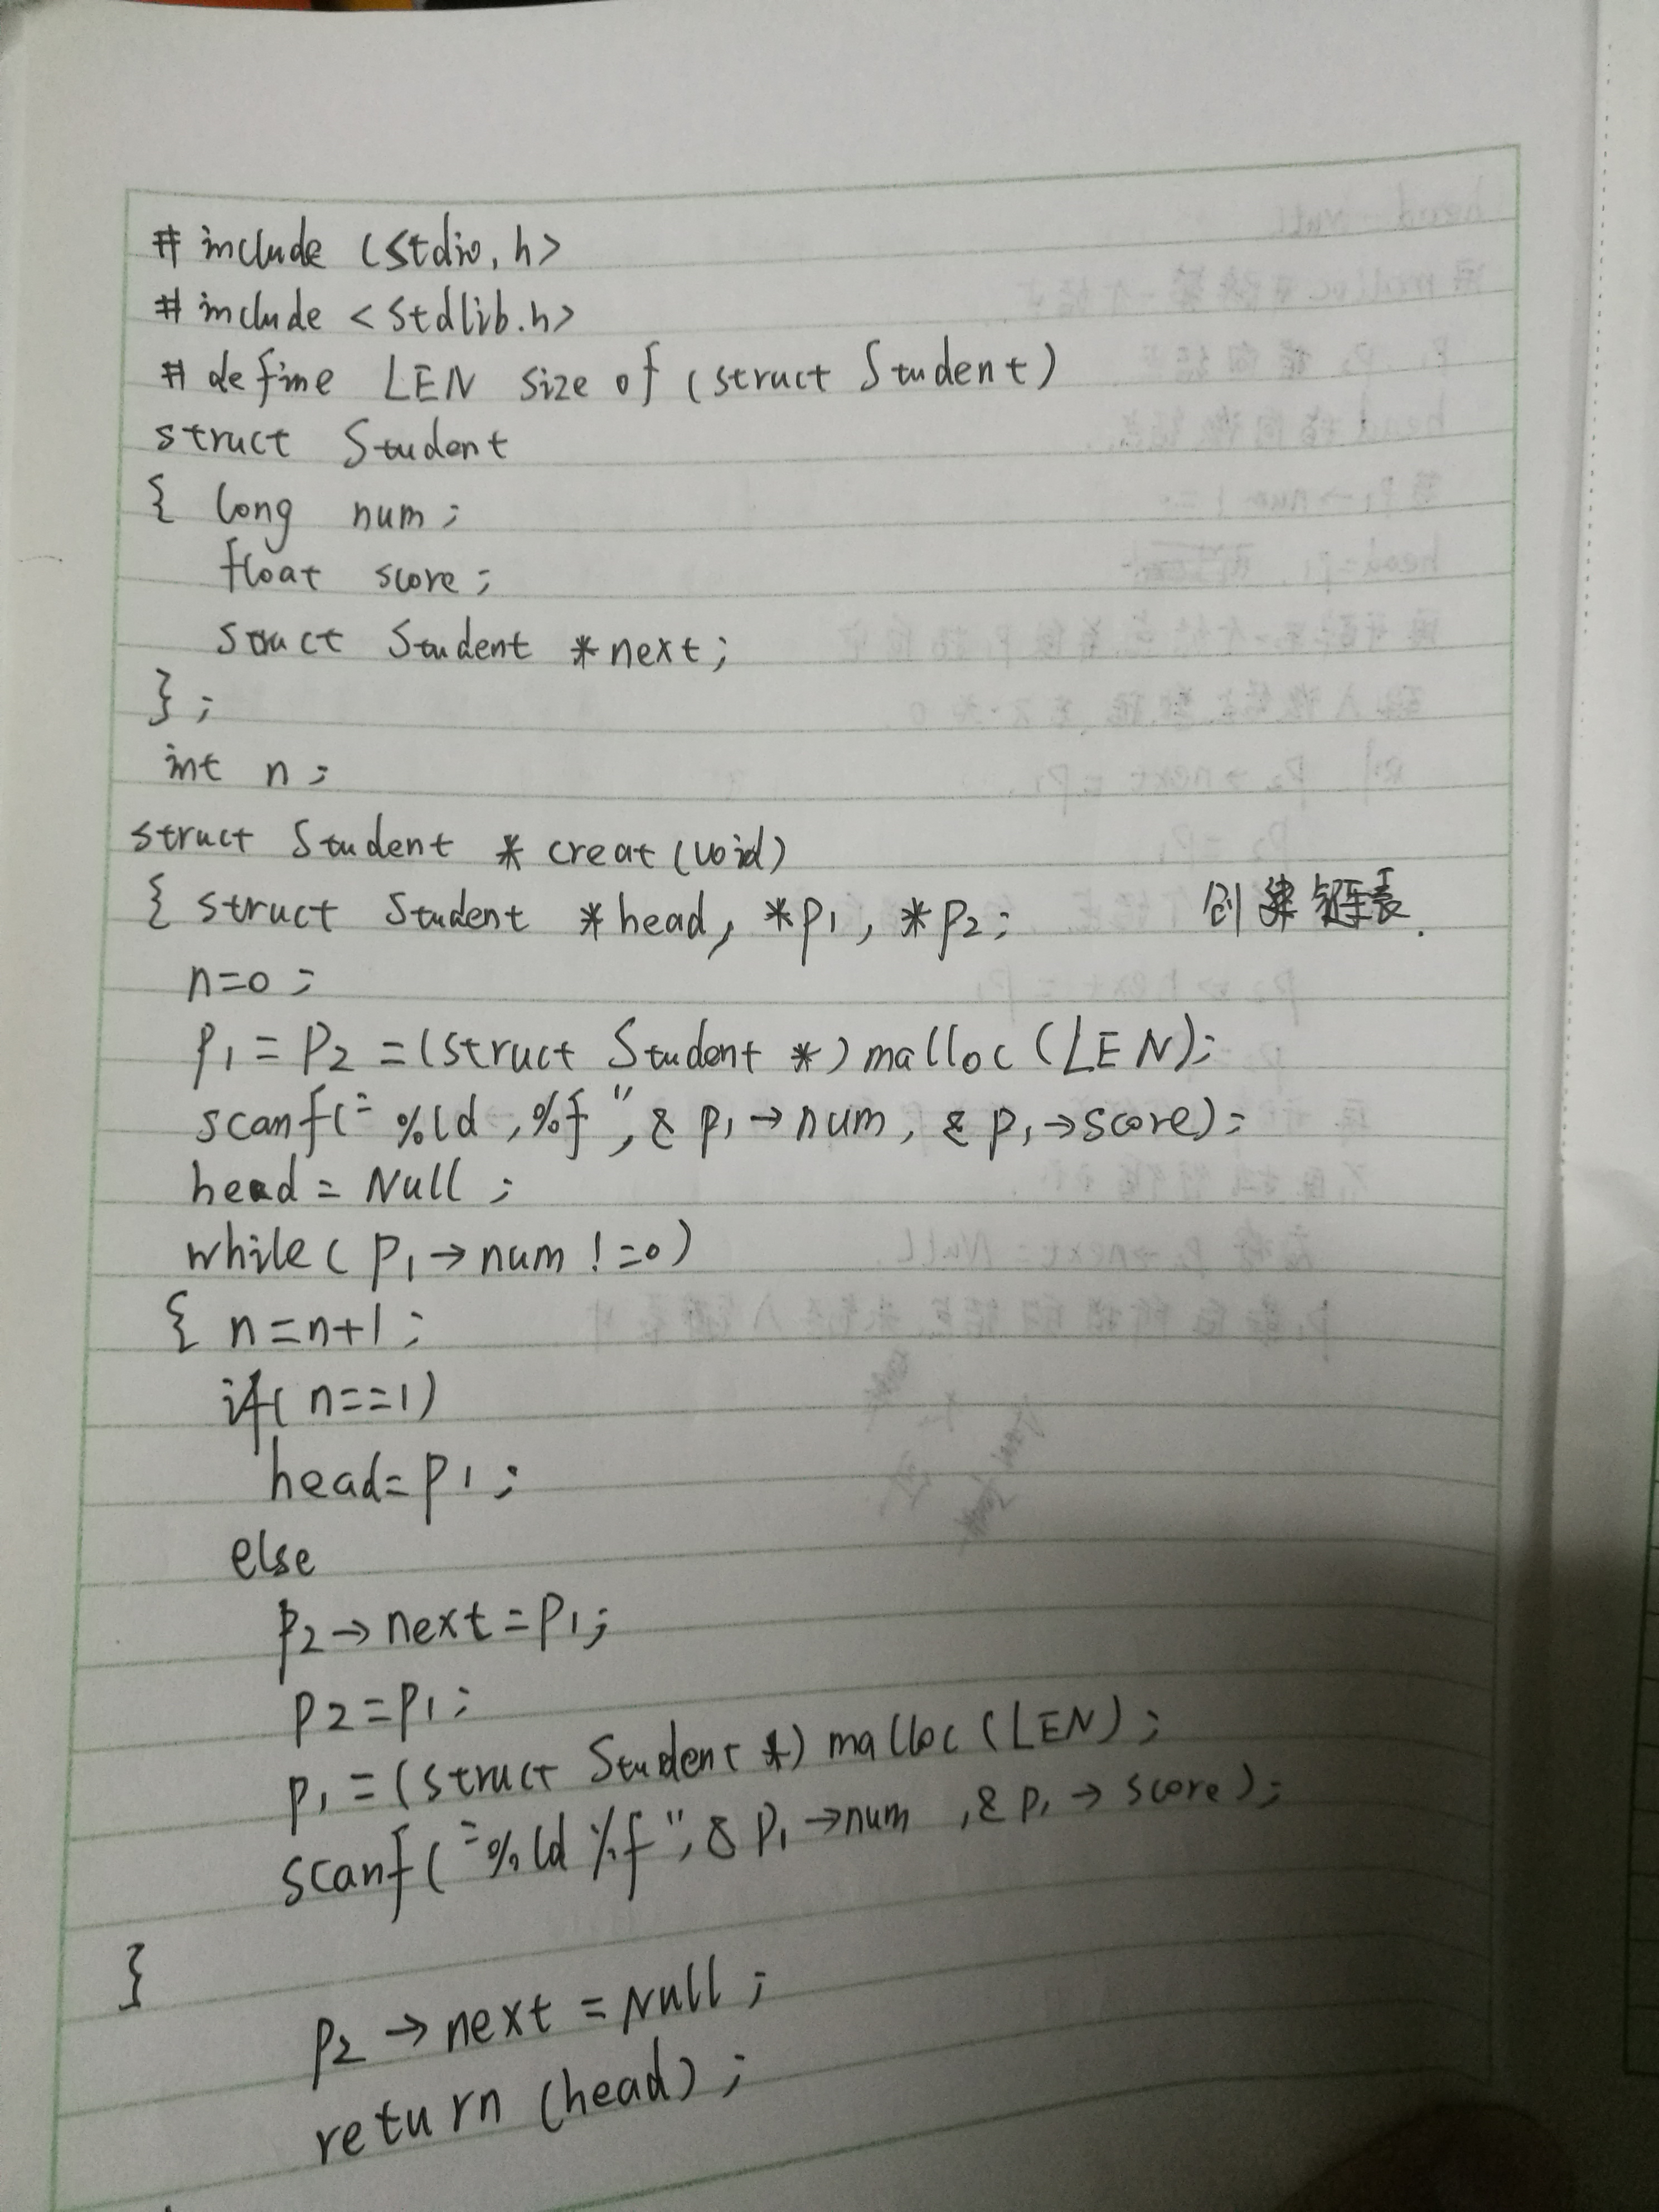 # include (stdio.h>
# include <stdlib.h>
# define LEN size of (struct Student)
struct Student
{ long num;
float score;
struct Student *next;
};
int n;
struct Student * creat (void)
{ struct Student *head, *p1, *p2;
创建链表.
n=0;
p1 = p2 = (struct Student *) malloc (LEN);
scanf("%ld,%f",&p1→num, &p1→score);
head = Null;
while (p1→num !=0)
{ n=n+1;
if( n==1)
head=p1;
else
p2→next=p1;
p2=p1;
p1=(struct Student *) malloc (LEN);
scanf("%ld %f",&p1→num ,&p1→score);
}
p2→next = Null;
return (head);